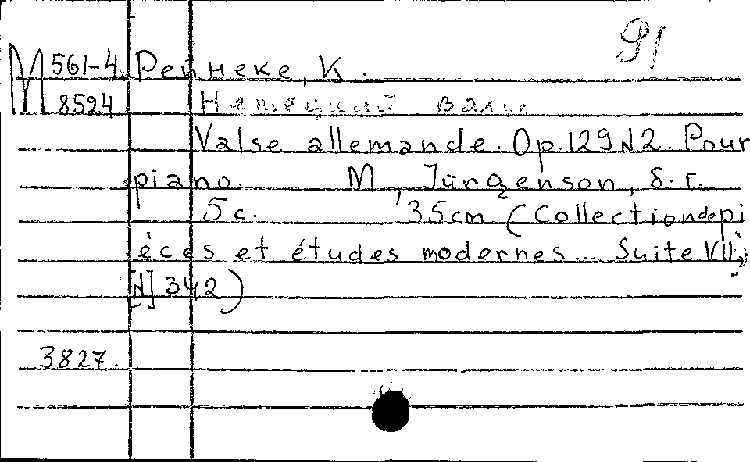 91
М 561-4 Рейнеке, К.
8594 Немецкий вальс
Valse allemande. Op.129 N2. Pour
piano. M., Jürgenson, s.г.
5 с. 35cm (Collection de pi
èces et études modernes... Suite VII,
[N] 342)
3827.